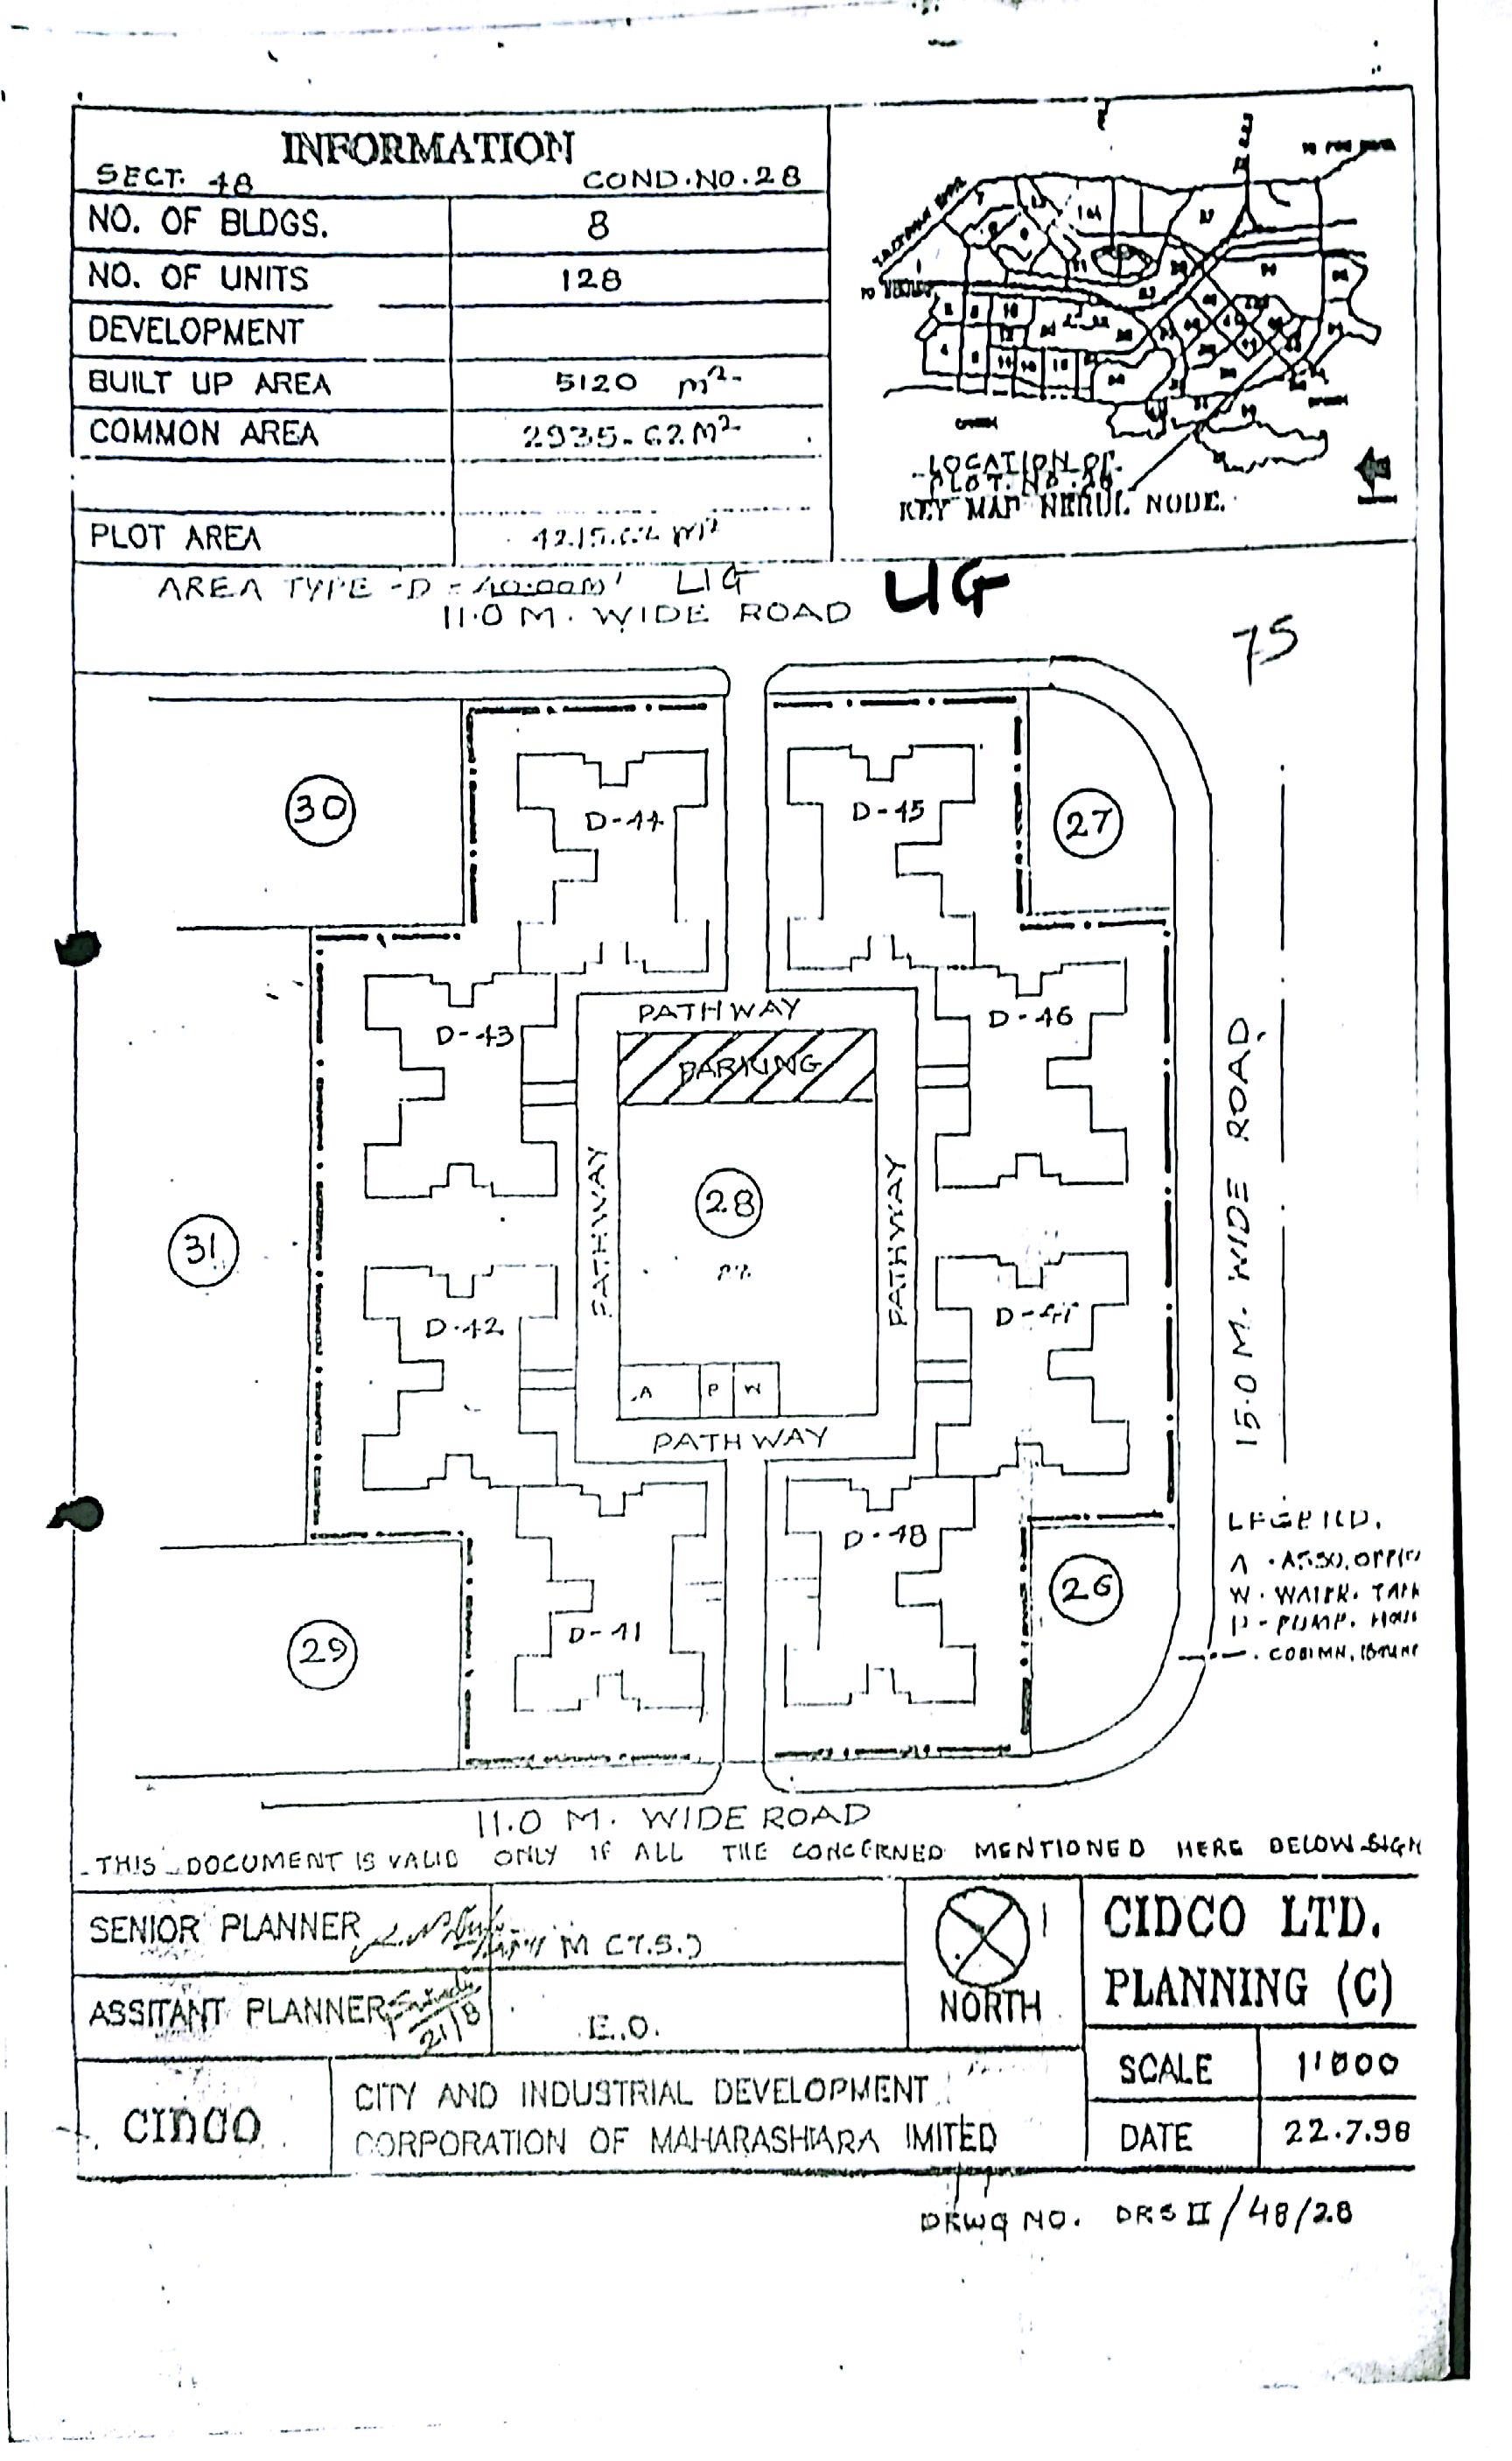 INFORMATION
SECT. 48 COND.NO.28
NO. OF BLDGS. 8
NO. OF UNITS 128
DEVELOPMENT
BUILT UP AREA 5120 m2
COMMON AREA 2935.62 M2
PLOT AREA 4215.62 m2
LOCATION OF
PLOT. NO.
KEY MAP NERUL NODE.
TO NERUL
AREA TYPE -D = 40.00M LIG
LIG
11.0 M. WIDE ROAD
75
30
D-44
D-45
27
PATHWAY
D-43
D-46
PARKING
PATHWAY
28
PATHWAY
31
D-42
D-47
15.0 M. WIDE ROAD
A P W
PATHWAY
D-48
D-41
29
26
LEGEND.
A - ASSO. OFFIC
W - WATER. TAN
P - PUMP. HOU
11.0 M. WIDE ROAD
THIS DOCUMENT IS VALID ONLY IF ALL THE CONCERNED MENTIONED HERE BELOW SIGN
SENIOR PLANNER M (T.S.)
ASSITANT PLANNER 21/8 E.O.
NORTH
CIDCO LTD.
PLANNING (C)
SCALE 1'000
DATE 22.7.98
CIDCO
CITY AND INDUSTRIAL DEVELOPMENT
CORPORATION OF MAHARASHTARA IMITED
DRWG NO. DRS II/48/28